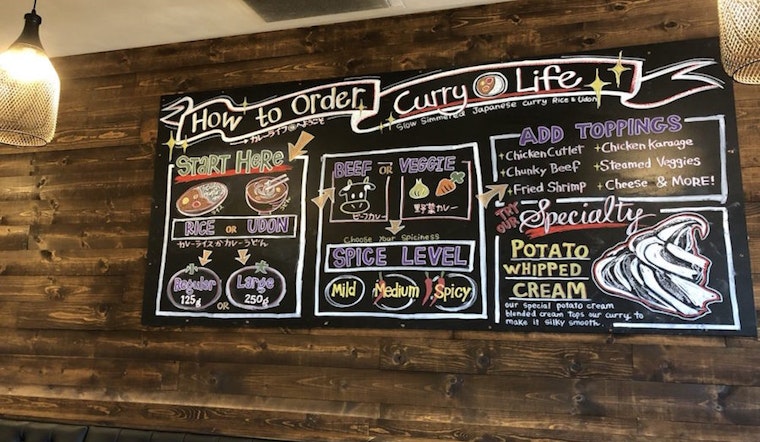 How to Order
Curry Life
Slow Simmered Japanese Curry Rice & Udon
カレーライフへようこそ
START HeRe
RICE or UDON
カレーライスかカレーうどん
Regular
125g
OR
大
Large
250g
BEEF or VEGGIE
ビーフカレー
野菜カレー
Choose Your Spiciness
SPICE LEVEL
Mild
Medium
Spicy
ADD TOPPINGS
+Chicken Cutlet
+Chicken Karaage
+Chunky Beef
+Steamed Veggies
+Fried Shrimp
+Cheese & MORE!
TRY OUR
Specialty
POTATO
WHIPPED
CREAM
our special potato cream
blended cream tops our curry to
make it silky smooth.